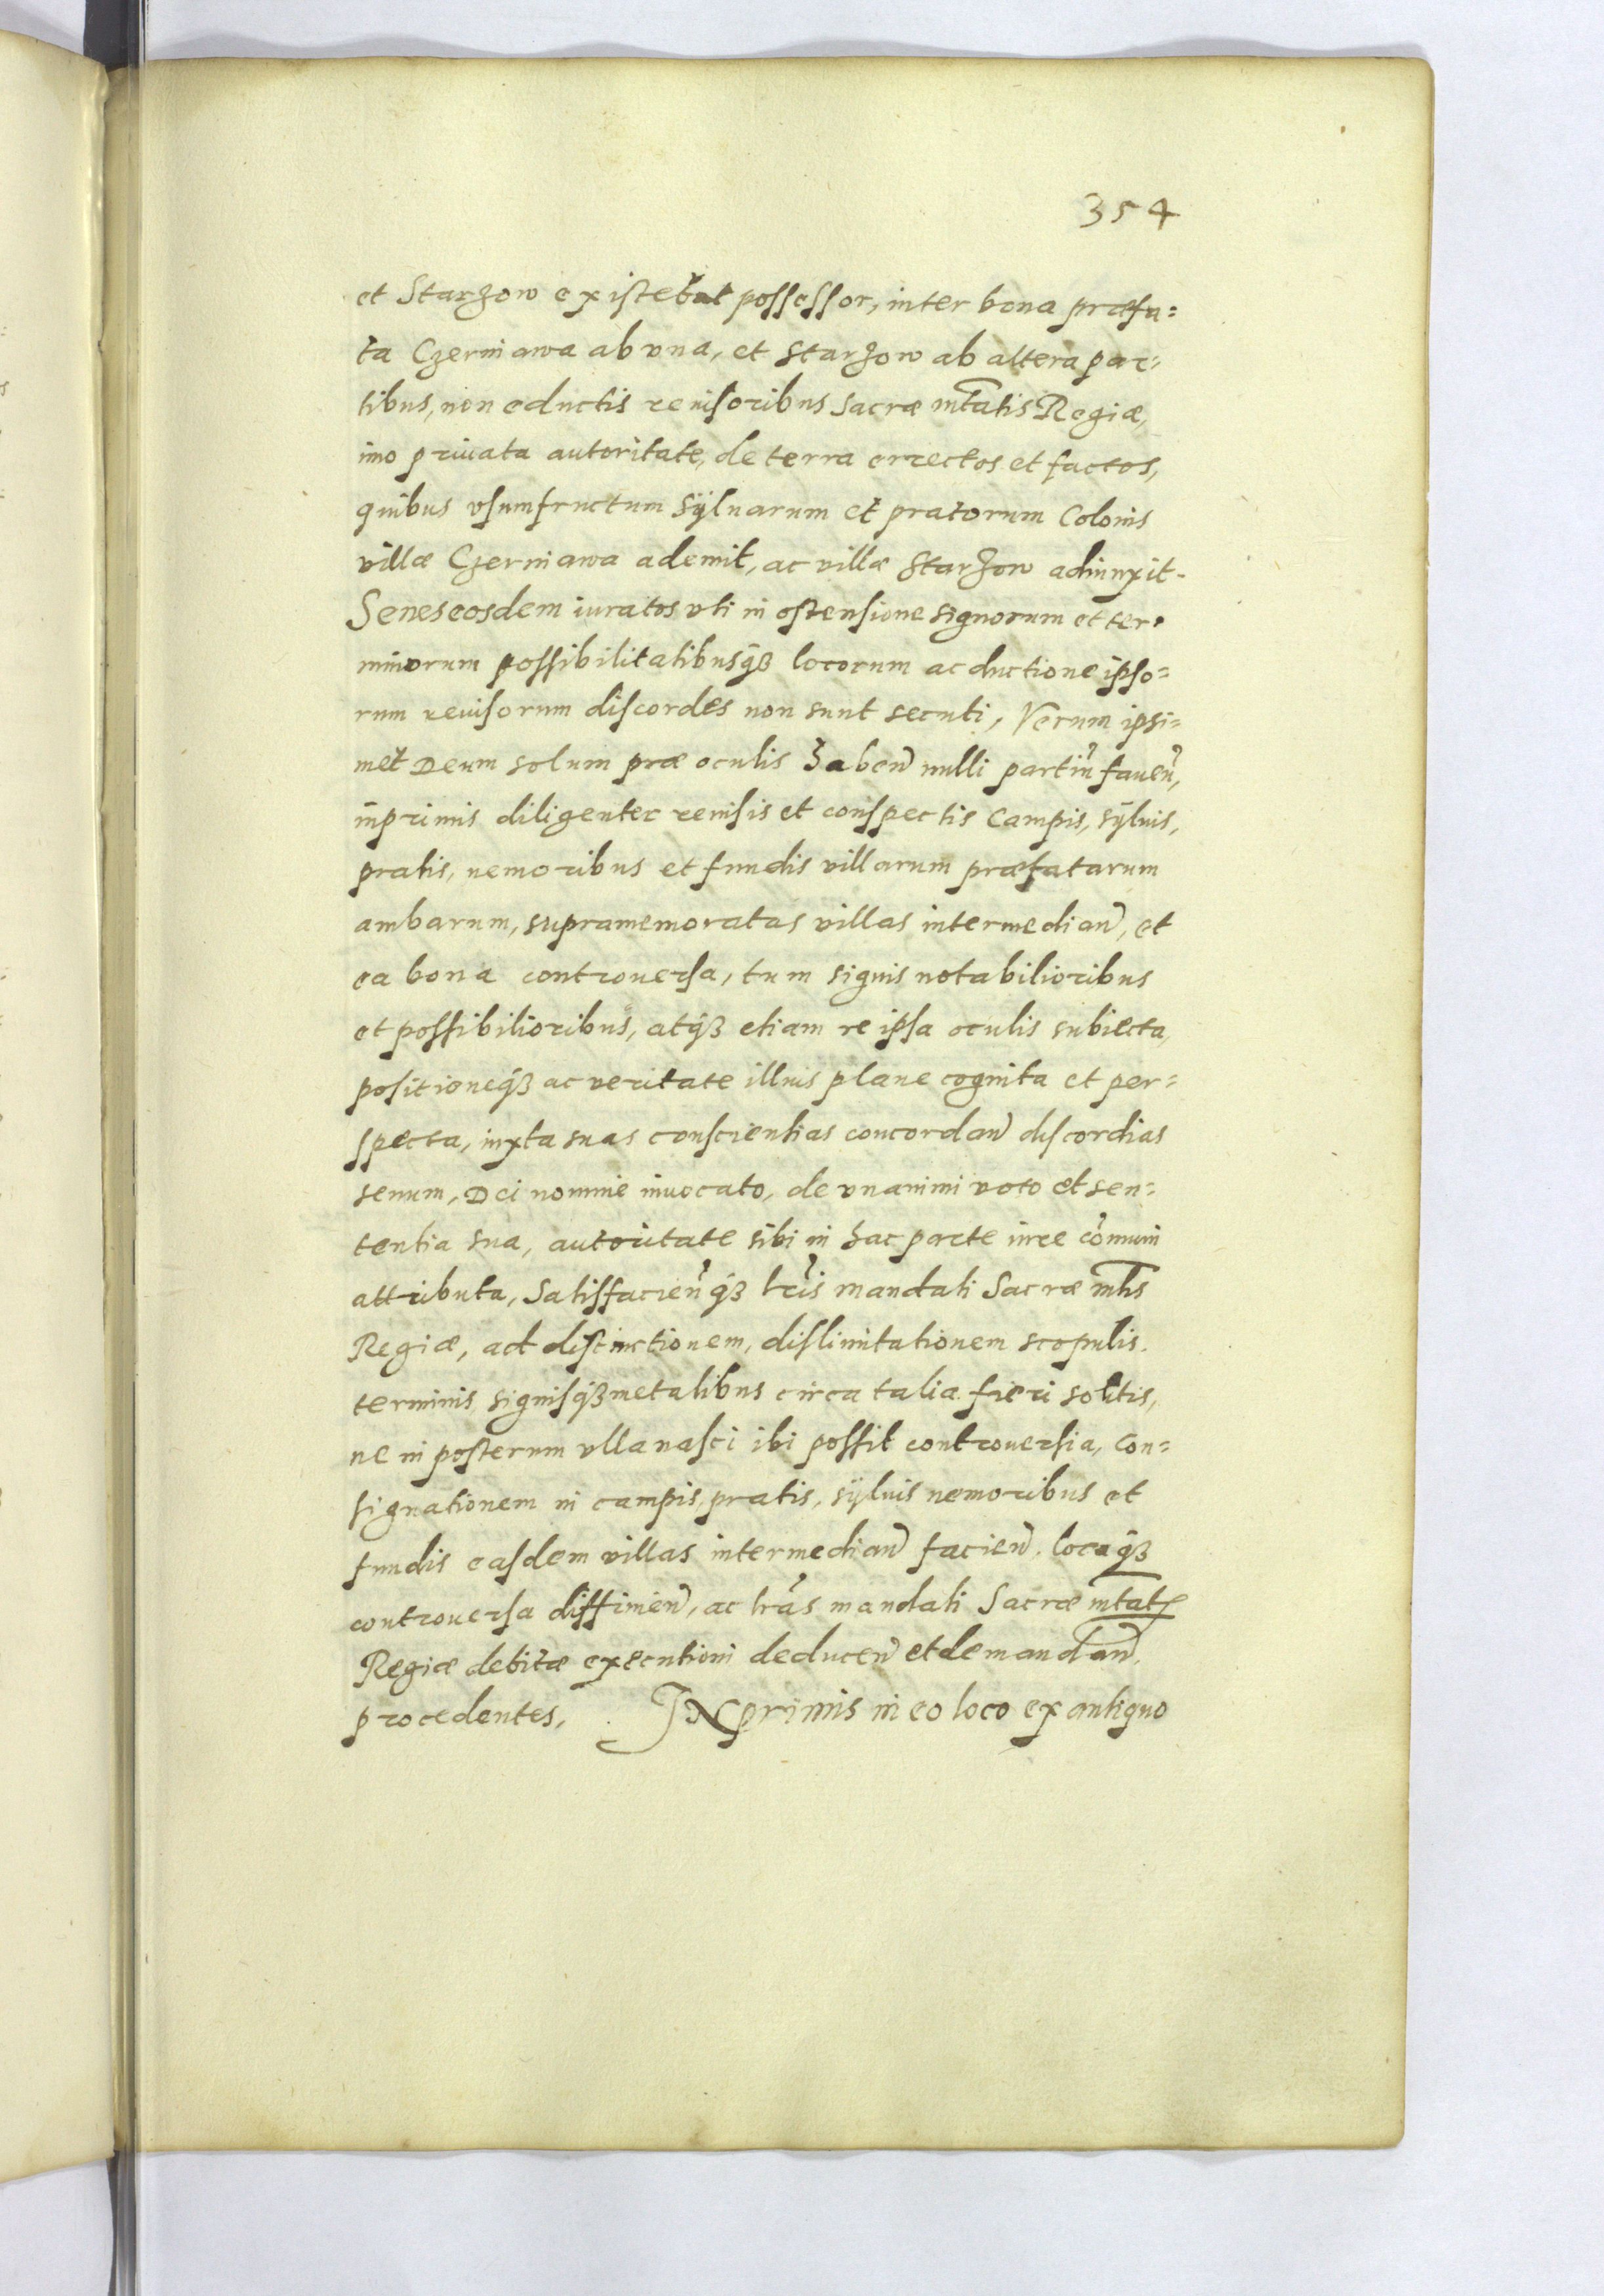 354
et Starzow existebat possessor, inter bona præfa=
ta Czerniawa ab vna, et Starzow ab altera par=
tibus, non eductis reuisoribus Sacræ mtatis Regiæ,
imo priuata autoritate, de terra errectos et factos,
quibus vsumfructum Sÿluarum et pratorum Colonis
villæ Czerniawa ademit, ac villæ Starzow adiunxit.
Senes eosdem iuratos vti in ostensione signorum et ter=
minorum possibilitatibusq́ʒ locorum ac ductione ipso=
rum reuisorum discordes non sunt secuti, Verum ipsi=
met Deum solum præ oculis haben̄ nulli partiū fauen̄,
inprimis diligenter reuisis et conspectis Campis, sÿluis,
pratis, nemoribus et fundis villarum præfatarum
ambarum, supramemoratas villas intermedian̄, et
ea bona controuersa, tum signis notabilioribus
et possibilioribus, atq́ʒ etiam re ipsa oculis subiecta,
positioneq́ʒ ac veritate illius plane cognita et per=
specta, iuxta suas conscientias concordan̄ discordias
senum, Dei nomine inuocato, de vnanimi voto et sen=
tentia sua, autoritate sibi in hac parte iure cōmuni
attributa, Satisfacien̄q́ʒ lris̄ mandati Sacræ mtis
Regiæ, ad distinctionem, dislimitationem scopulis.
terminis signisq́ʒ metalibus circa talia fieri solitis,
ne in posterum vlla nasci ibi possit controuersia, Con=
signationem in campis, pratis, sÿluis nemoribus et
fundis easdem villas intermedian̄ facien̄. locaq́ʒ
controuersa diffinien̄, ac lrās mandati Sacræ mtatis
Regiæ debitæ executioni deducen̄ et demandan̄.
procedentes, . INprimis in eo loco ex antiquo